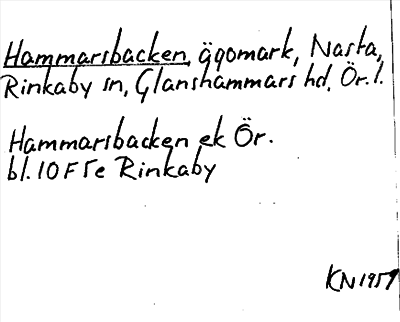 Hammarsbacken, ägomark, Nasta,
Rinkaby sn, Glanshammars hd, Ör. l.
Hammarsbacken ek Ör.
bl. 10F5e Rinkaby
KN 1959